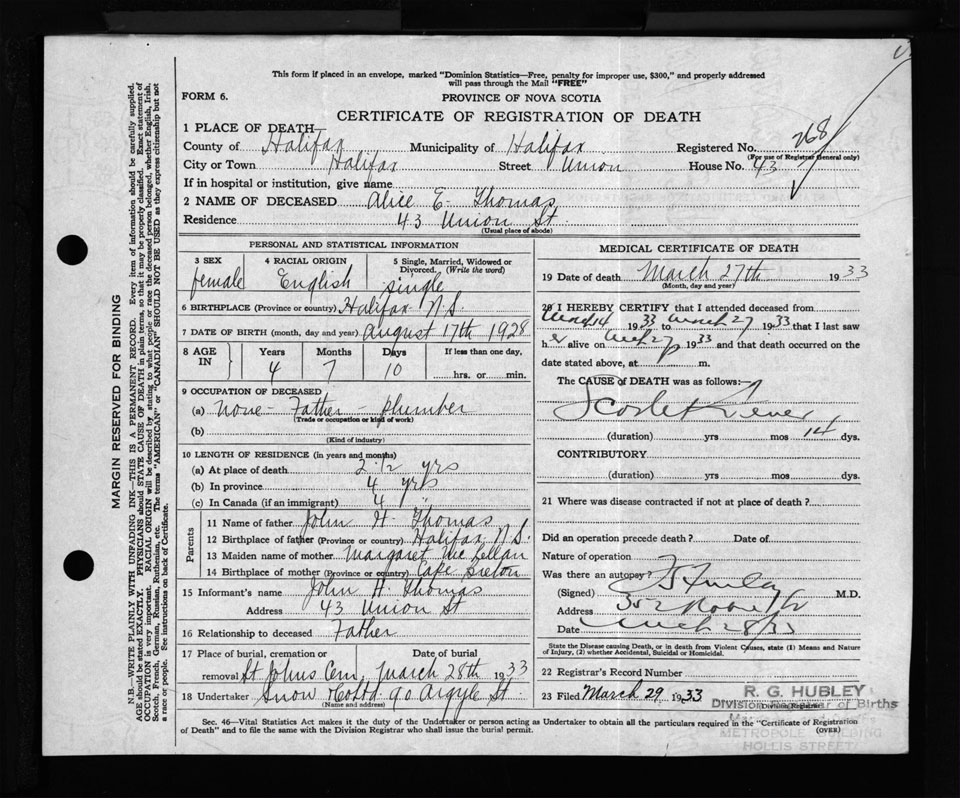 This form if placed in an envelope, marked "Dominion Statistics—Free, penalty for improper use, $300," and properly addressed
will pass through the Mail "FREE"
FORM 6.
PROVINCE OF NOVA SCOTIA
CERTIFICATE OF REGISTRATION OF DEATH
1 PLACE OF DEATH—
County of Halifax Municipality of Halifax Registered No. 268
(For use of Registrar General only)
City or Town Halifax Street Union House No. 43
If in hospital or institution, give name
2 NAME OF DECEASED Alice E. Thomas
Residence 43 Union St
(Usual place of abode)
PERSONAL AND STATISTICAL INFORMATION
3 SEX
female
4 RACIAL ORIGIN
English
5 Single, Married, Widowed or
Divorced. (Write the word)
single
6 BIRTHPLACE (Province or country) Halifax N.S.
7 DATE OF BIRTH (month, day and year) August 17th 1928
8 AGE IN
Years Months Days If less than one day,
4 7 10 hrs. or min.
9 OCCUPATION OF DECEASED
(a) None - Father - plumber
(Trade or occupation or kind of work)
(b)
(Kind of industry)
10 LENGTH OF RESIDENCE (in years and months)
(a) At place of death 2 1/2 yrs
(b) In province 4 yrs
(c) In Canada (if an immigrant) 4 "
Parents
11 Name of father John H. Thomas
12 Birthplace of father (Province or country) Halifax N.S.
13 Maiden name of mother Margaret McLellan
14 Birthplace of mother (Province or country) Cape Breton
15 Informant's name John H. Thomas
Address 43 Union St
16 Relationship to deceased Father
17 Place of burial, cremation or Date of burial
removal St Johns Cem. March 28th 1933
18 Undertaker Snow Co Ltd 90 Argyle St
(Name and address)
MEDICAL CERTIFICATE OF DEATH
19 Date of death March 27th 1933
(Month, day and year)
20 I HEREBY CERTIFY that I attended deceased from
March 14 1933 to March 27 1933 that I last saw
her alive on March 27 1933 and that death occurred on the
date stated above, at m.
The CAUSE OF DEATH was as follows:—
Scarlet Fever
(duration) yrs mos 14 dys.
CONTRIBUTORY
(duration) yrs mos dys.
21 Where was disease contracted if not at place of death?
Did an operation precede death? Date of
Nature of operation
Was there an autopsy?
(Signed) M.D.
Address
Date March 28/33
State the Disease causing Death, or in death from Violent Causes, state (1) Means and Nature
of Injury, (2) whether Accidental, Suicidal or Homicidal.
22 Registrar's Record Number
23 Filed March 29 1933
Division Registrar
R. G. HUBLEY
DIVISION REGISTRAR of Births
METROPOLE BUILDING
HOLLIS STREET
Sec. 46—Vital Statistics Act makes it the duty of the Undertaker or person acting as Undertaker to obtain all the particulars required in the "Certificate of Registration
of Death" and to file the same with the Division Registrar who shall issue the burial permit.
(OVER)
MARGIN RESERVED FOR BINDING
N.B.—WRITE PLAINLY WITH UNFADING INK—THIS IS A PERMANENT RECORD. Every item of information should be carefully supplied.
AGE should be stated EXACTLY. PHYSICIANS should STATE CAUSE OF DEATH in plain terms, so that it may be properly classified. Exact statement of
OCCUPATION is very important. RACIAL ORIGIN will be described by stating to what people or race the deceased person belonged, whether English, Irish,
Scotch, French, German, Russian, Ruthenian, etc. The terms "AMERICAN" or "CANADIAN" SHOULD NOT BE USED as they express citizenship but not
a race or people. See instructions on back of Certificate.